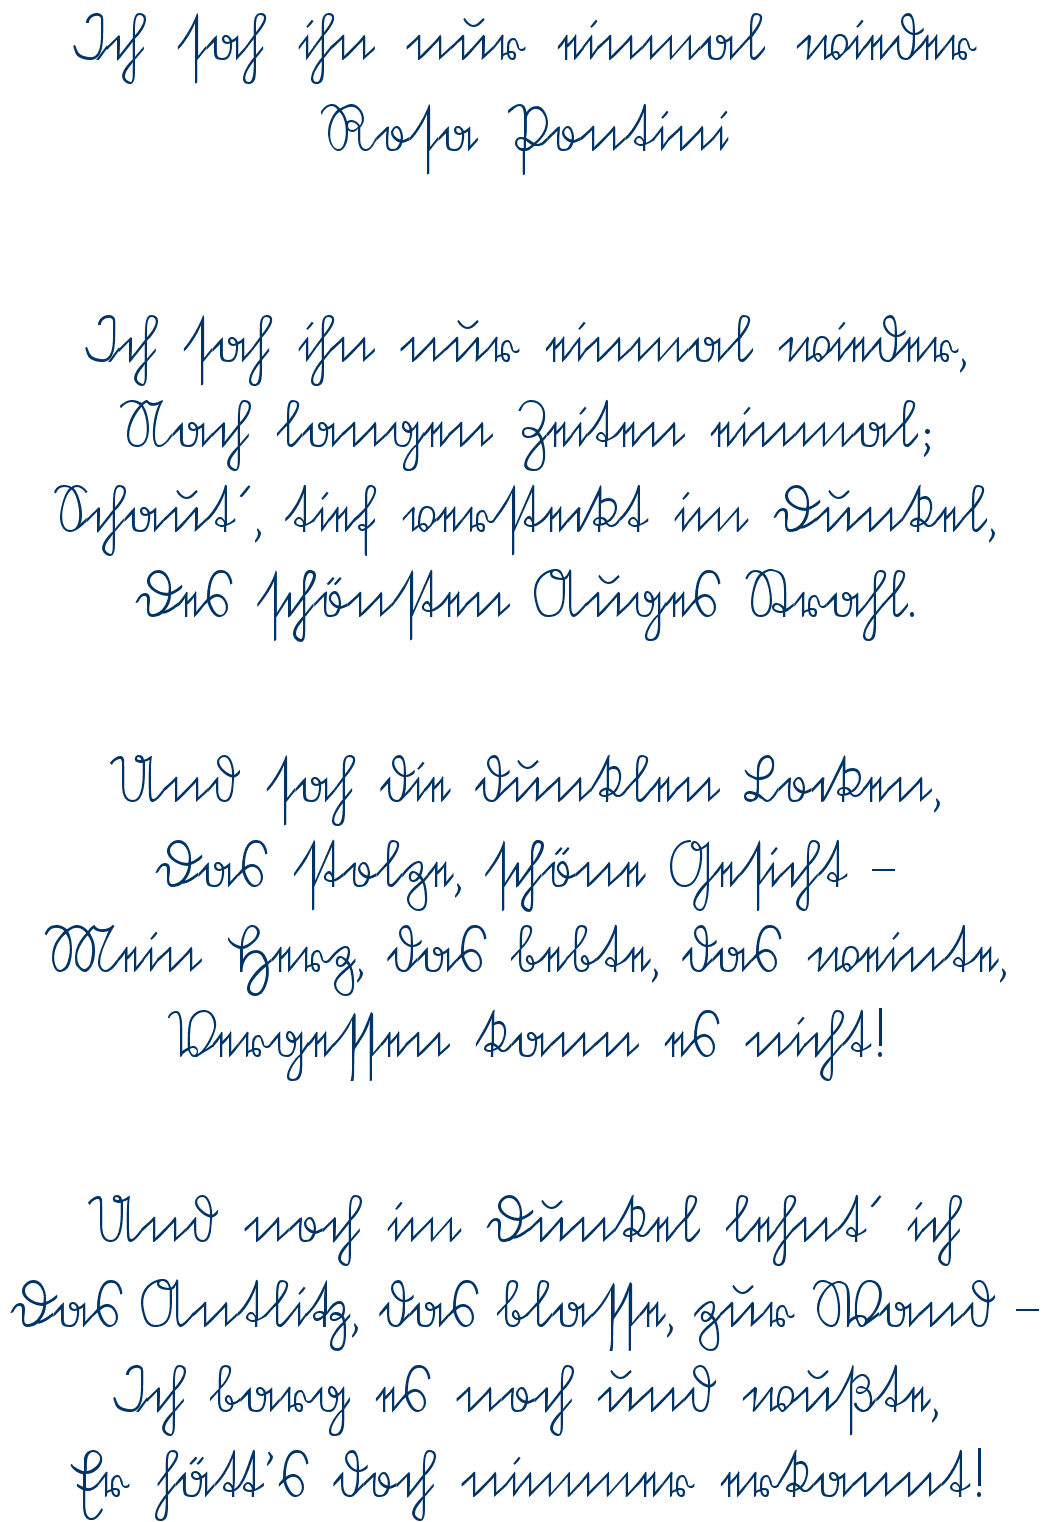 Ich sah ihn nur einmal wieder
Rosa Pontini
Ich sah ihn nur einmal wieder,
Nach langen Zeiten einmal;
Schaut´, tief versteckt im Dunkel,
Des schönsten Auges Strahl.
Und sah die dunklen Locken,
Das stolze, schöne Gesicht –
Mein Herz, das bebte, das weinte,
Vergessen kann es nicht!
Und noch im Dunkel lehnt´ ich
Das Antlitz, das blasse, zur Wand –
Ich barg es noch und wußte,
Er hätt's doch nimmer erkannt!